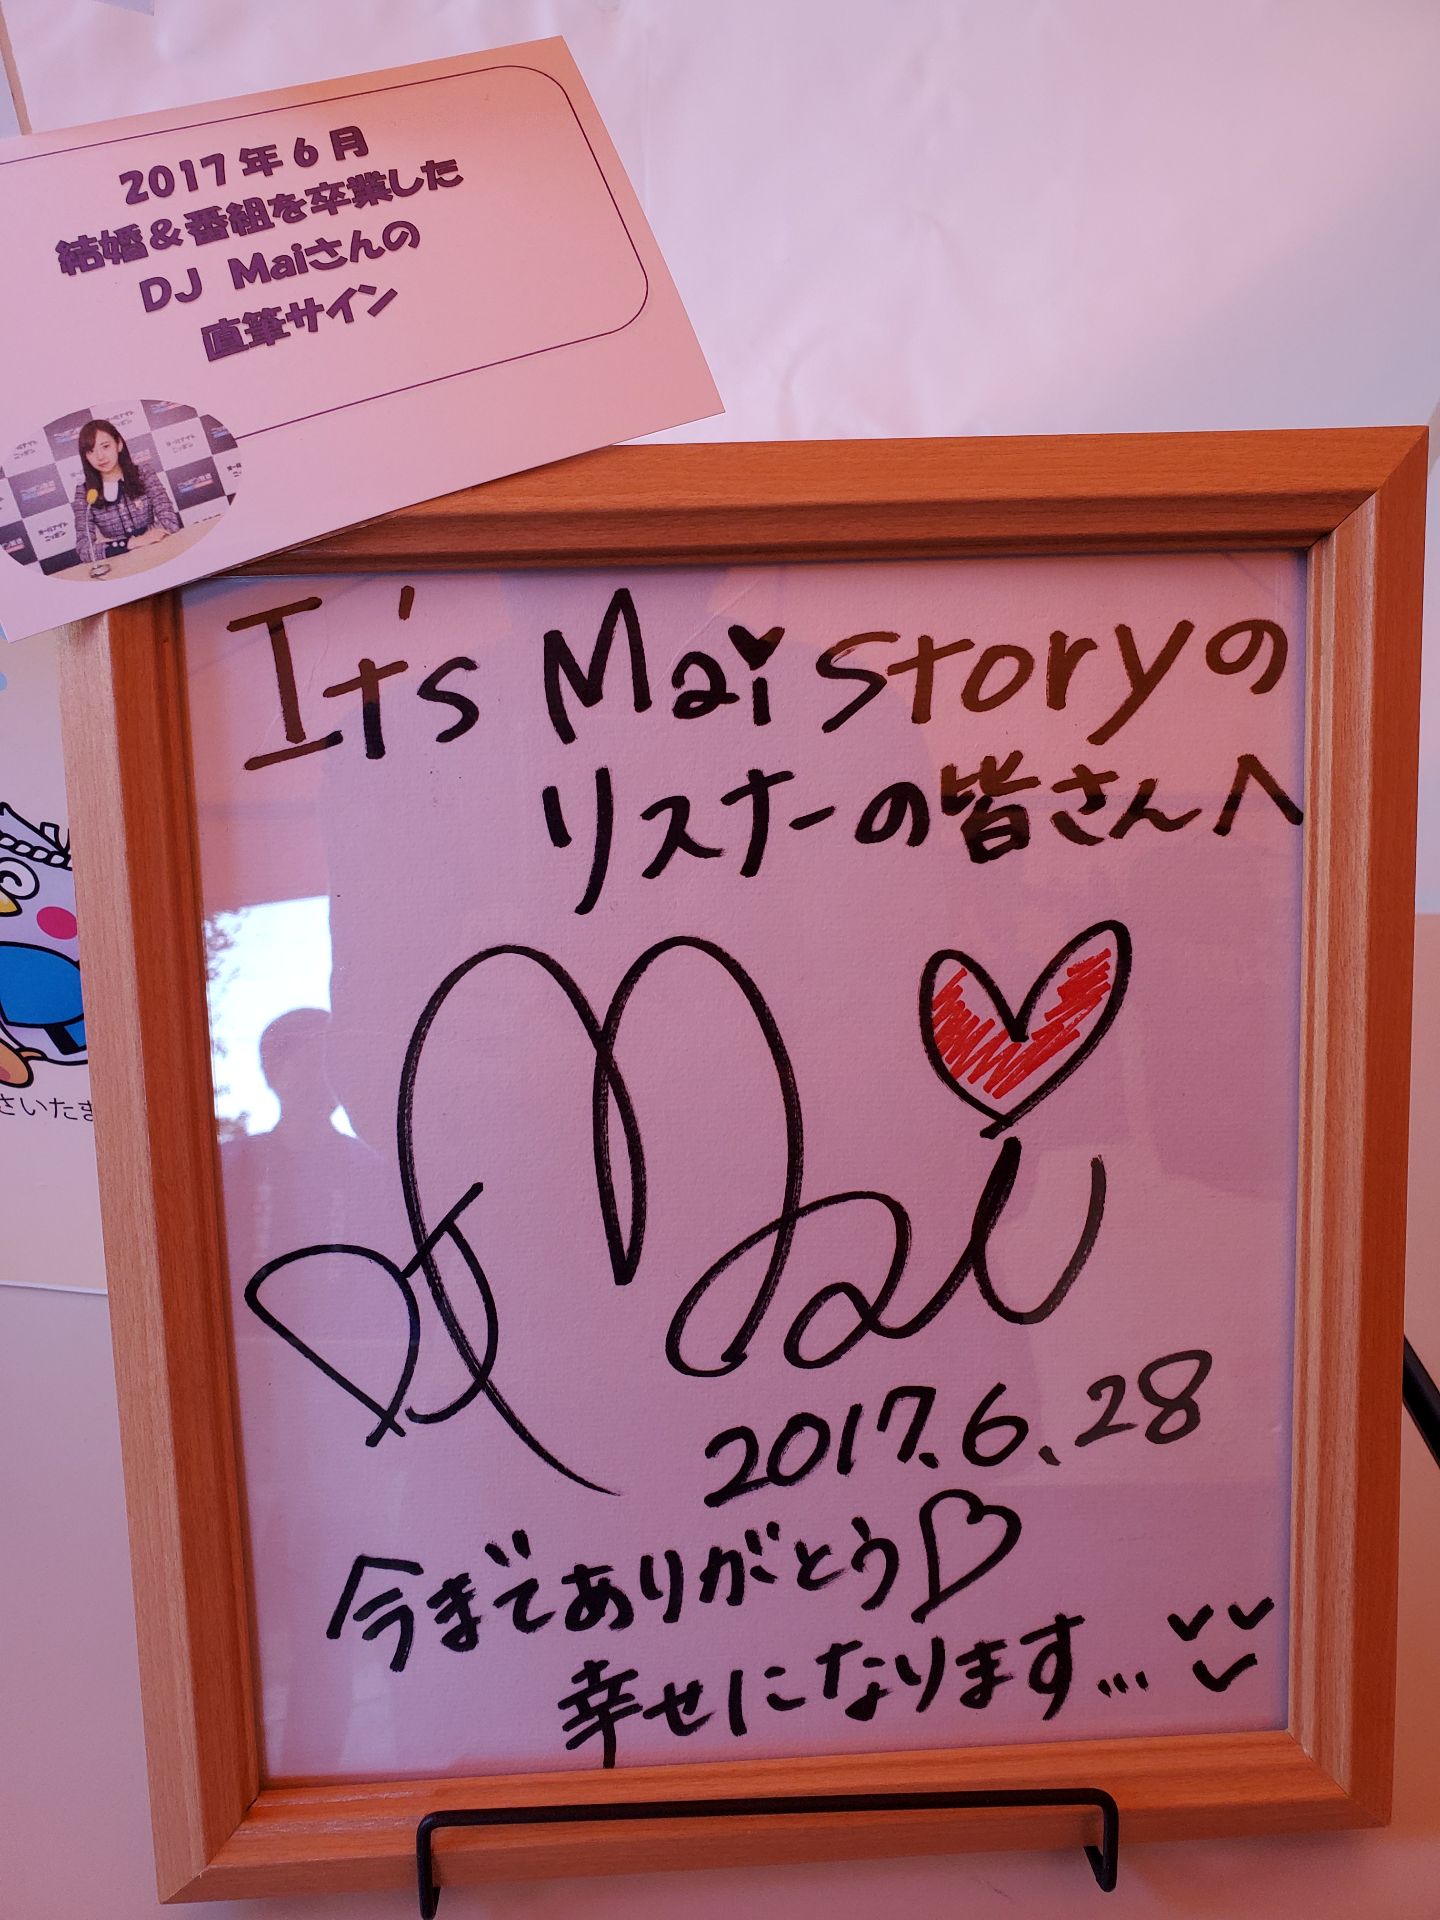 2017年6月
結婚&番組を卒業した
DJ Maiさんの
直筆サイン
オールナイト
ニッポン
It's Mai storyの
リスナーの皆さんへ
DJ Mai
2017.6.28
今までありがとう
幸せになります...
さいたま